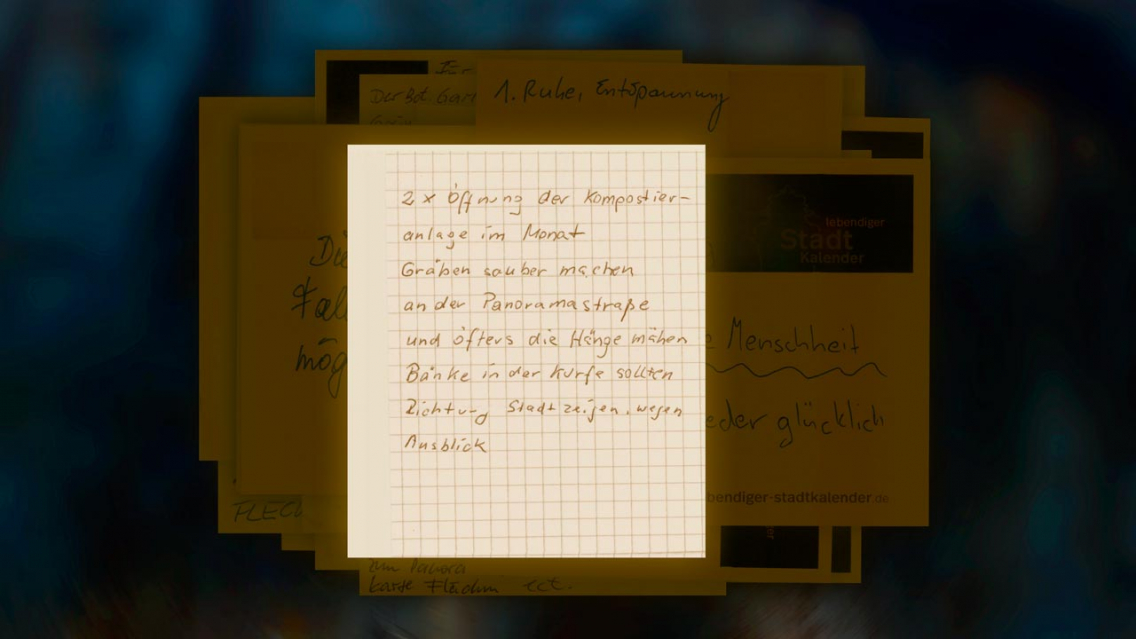 Der Bot. Gart
1. Ruhe, Entspannung
2 x Öffnung der Kompostier-
anlage im Monat
Gräben sauber machen
an der Panoramastraße
und öfters die Hänge mähen
Bänke in der Kurfe sollten
Richtung Stadt zeigen. wegen
Ausblick
Die
mög
lebendiger
Stadt
Kalender
Menschheit
eder glücklich
bendiger-stadtkalender.de
FLECK
karge Flächen ect.